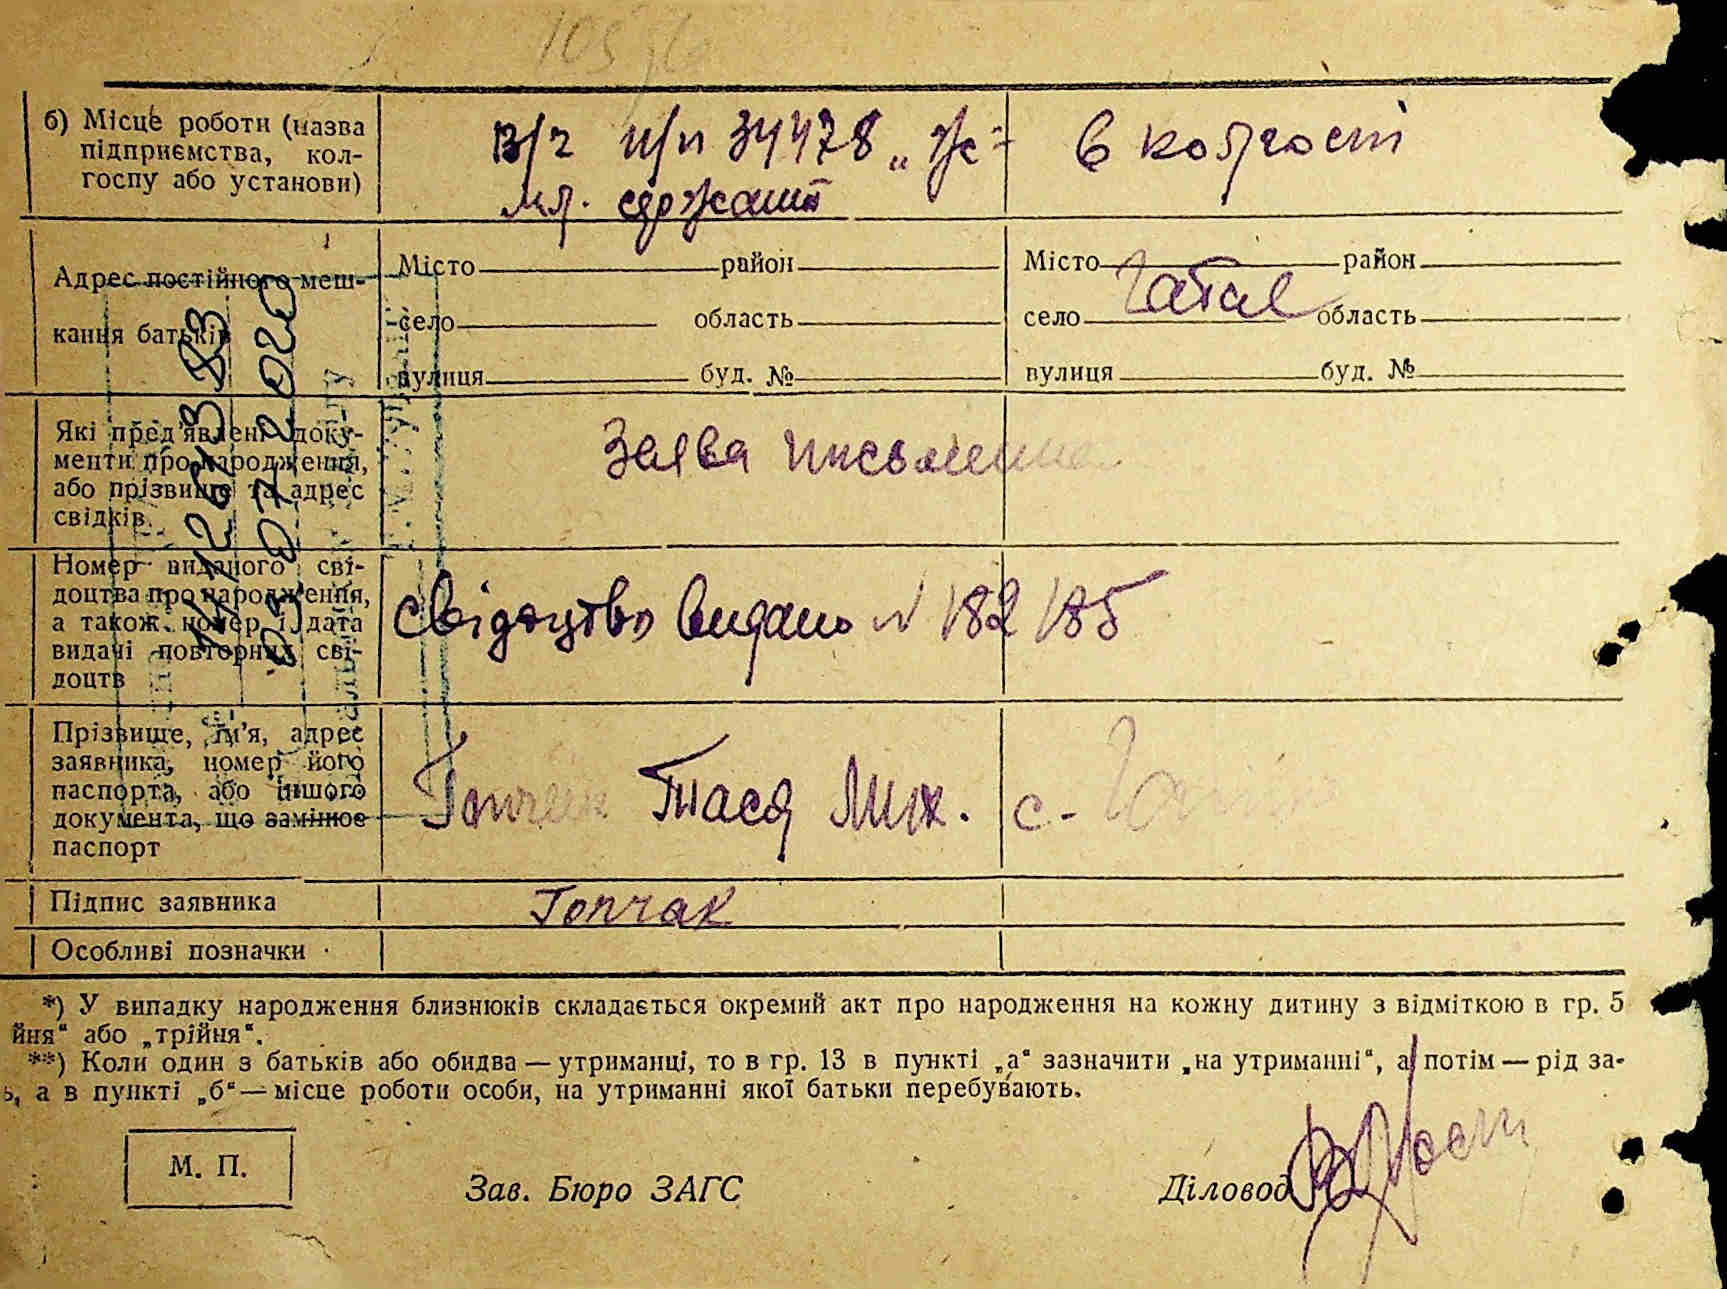 б) Місце роботи (назва
підприємства, кол-
госпу або установи)
в/ч п/п 34478 „Ж"
мл. сержант
в колгоспі
Адрес постійного меш-
кання батьків
Місто район
село область
вулиця буд. №
Місто район
село Гатне область
вулиця буд. №
Які пред'явлені доку-
менти про народження,
або прізвище та адрес
свідків.
Заява письменна
Номер виданого сві-
доцтва про народження,
а також номер і дата
видачі повторних сві-
доцтв
свідоцтво видано N 182185
Прізвище, ім'я, адрес
заявника, номер його
паспорта, або іншого
документа, що замінює
паспорт
Топчак Тася Мих. с.
Підпис заявника
Топчак
Особливі позначки
*) У випадку народження близнюків складається окремий акт про народження на кожну дитину з відміткою в гр. 5
йня" або „трійня".
**) Коли один з батьків або обидва — утриманці, то в гр. 13 в пункті „а" зазначити „на утриманні", а потім — рід за-
ь, а в пункті „б" — місце роботи особи, на утриманні якої батьки перебувають.
М. П.
Зав. Бюро ЗАГС
Діловод